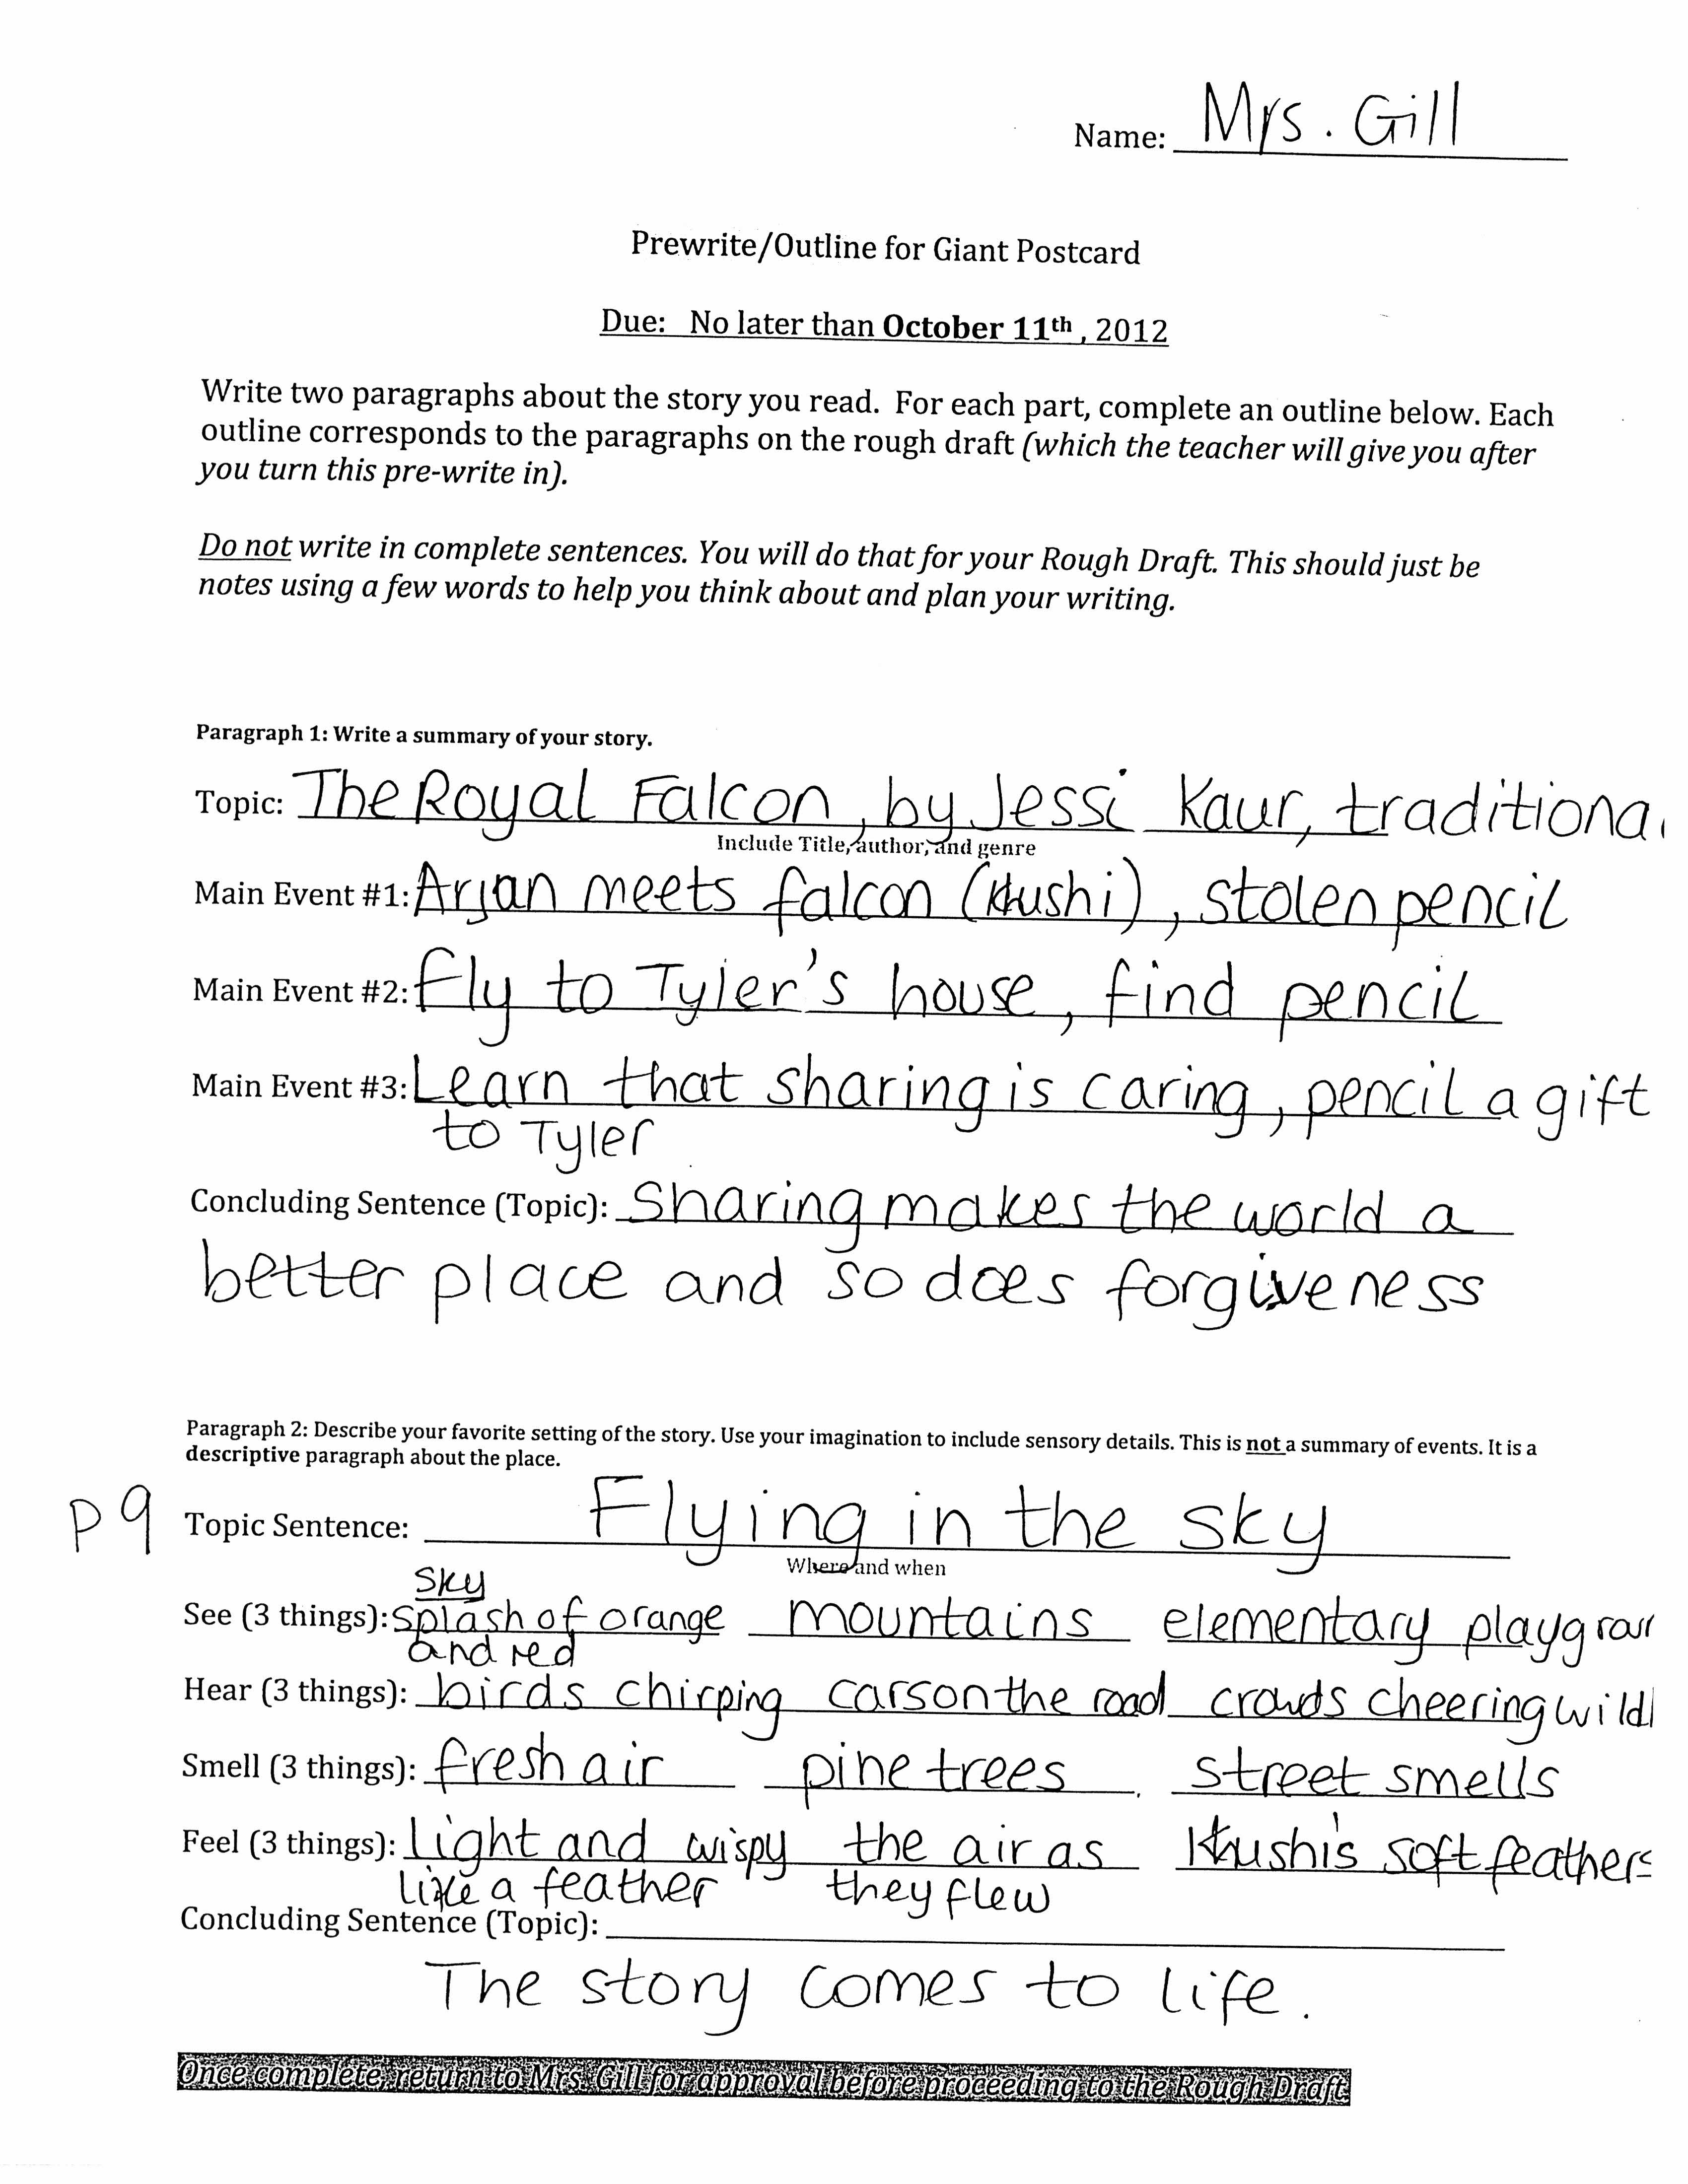 Name: Mrs. Gill
Prewrite/Outline for Giant Postcard
Due: No later than October 11th, 2012
Write two paragraphs about the story you read. For each part, complete an outline below. Each
outline corresponds to the paragraphs on the rough draft (which the teacher will give you after
you turn this pre-write in).
Do not write in complete sentences. You will do that for your Rough Draft. This should just be
notes using a few words to help you think about and plan your writing.
Paragraph 1: Write a summary of your story.
Topic: The Royal Falcon, by Jessi Kaur, traditional
Include Title, author, and genre
Main Event #1: Arjan meets falcon (Khushi), stolen pencil
Main Event #2: fly to Tyler's house, find pencil
Main Event #3: Learn that sharing is caring, pencil a gift
to Tyler
Concluding Sentence (Topic): Sharing makes the world a
better place and so does forgiveness
Paragraph 2: Describe your favorite setting of the story. Use your imagination to include sensory details. This is not a summary of events. It is a
descriptive paragraph about the place.
P9 Topic Sentence: Flying in the sky
Where and when
sky
See (3 things): splash of orange mountains elementary playgrou
and red
Hear (3 things): birds chirping cars on the road crowds cheering wildl
Smell (3 things): fresh air pine trees street smells
Feel (3 things): light and wispy the air as Khushi's soft feathers
like a feather they flew
Concluding Sentence (Topic):
The story comes to life.
Once complete, return to Mrs. Gill for approval before proceeding to the Rough Draft.